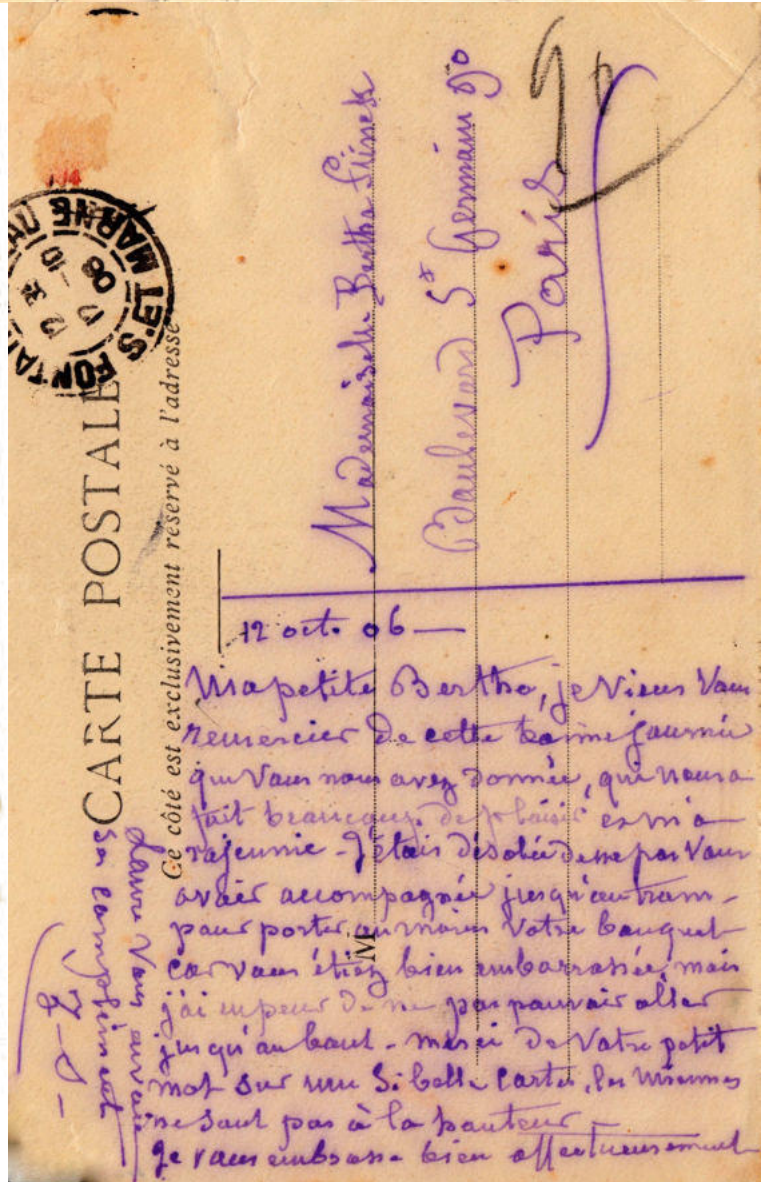 CARTE POSTALE
Ce côté est exclusivement réservé à l'adresse
M
Mademoiselle Berthe
Boulevard St Germain 90
Paris
90
12 oct. 06 —
Ma petite Berthe, je Viens Vous
remercier de cette bonne journée
que Vous nous avez donnée, qui nous a
fait beaucoup de plaisir et m'a
rajeunie - J'étais désolée de ne pas Vous
avoir accompagnée jusqu'au tram -
pour porter au moins Votre bouquet
car vous étiez bien embarrassée, mais
j'ai eu peur de ne pas pouvoir aller
jusqu'au bout - merci de Votre petit
mot sur une Si belle carte, les miennes
ne sont pas à la hauteur -
Je vous embrasse bien affectueusement
Laure Vous envoie
Ses compliments